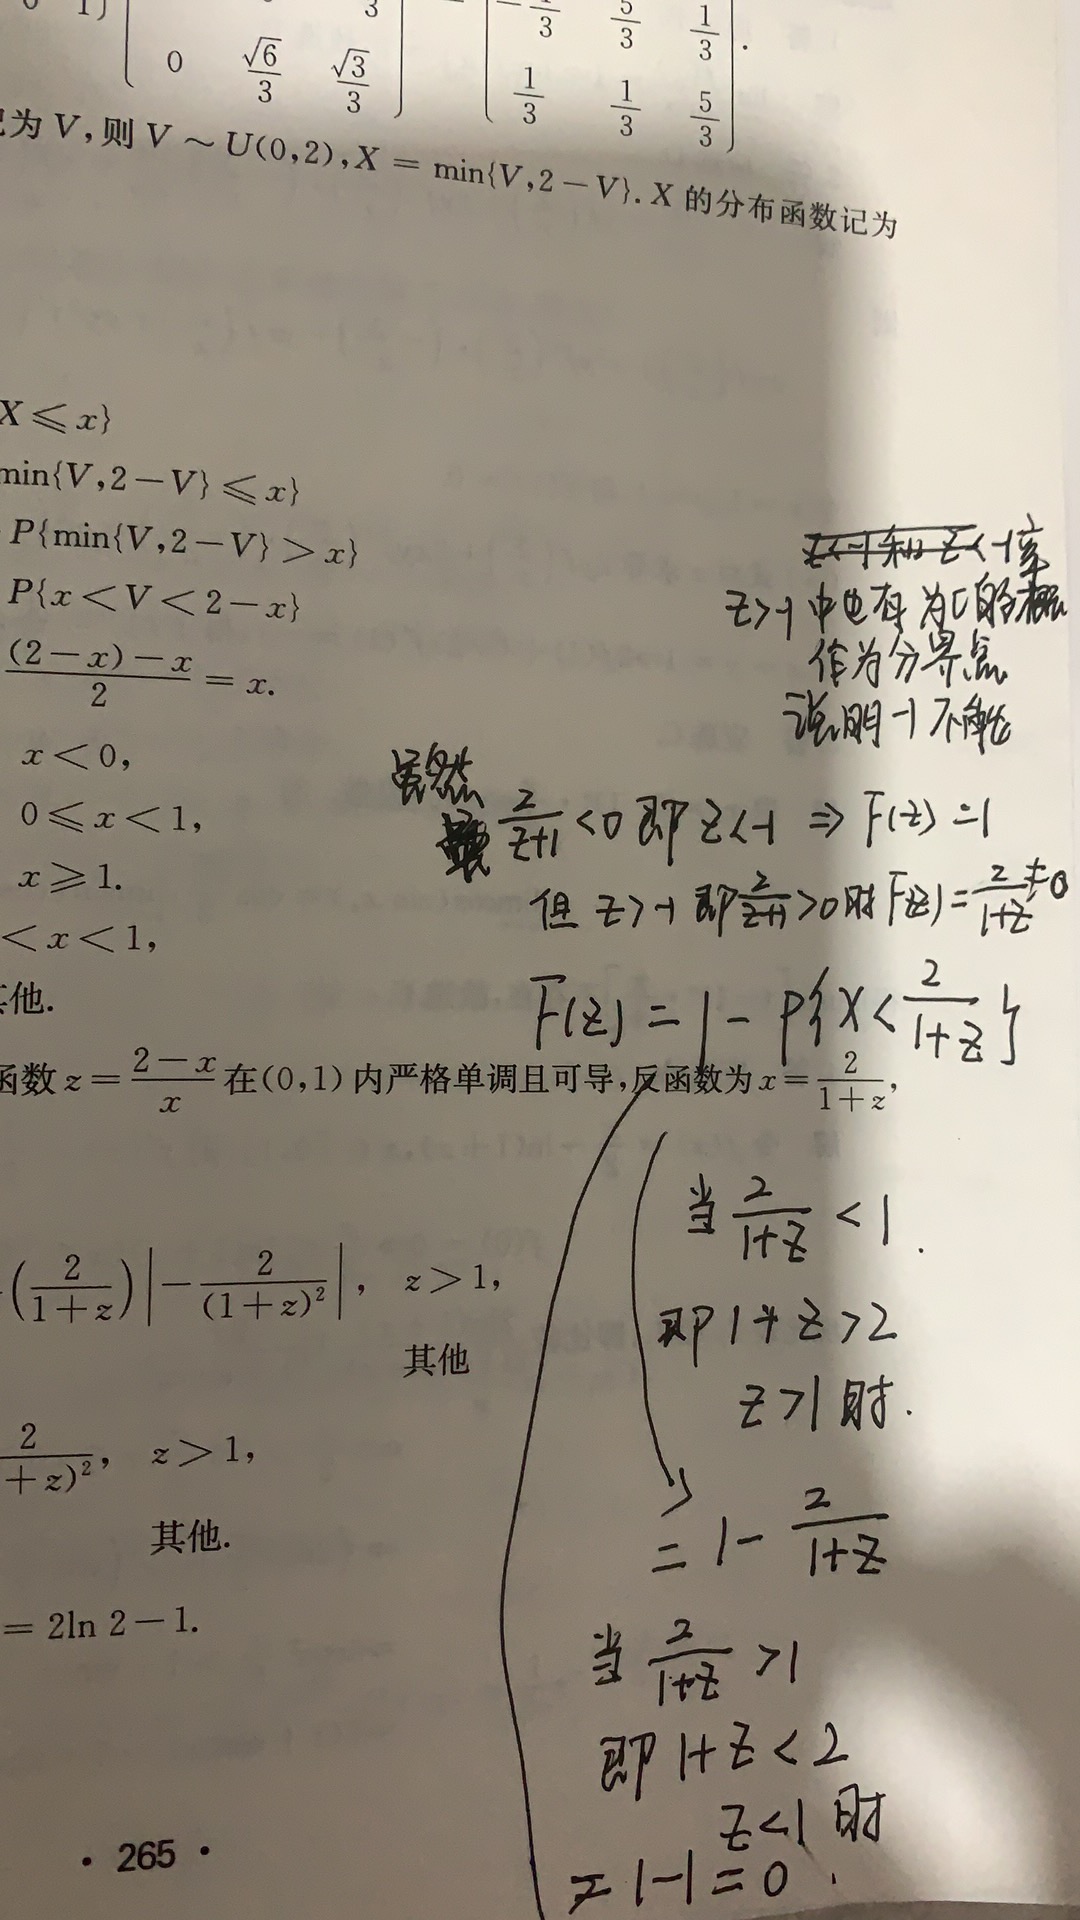 0 1) 3 = -1/3 5/3 1/3
0 √6/3 √3/3 1/3 1/3 5/3 .
记为 V,则 V ~ U(0,2),X = min{V,2-V}. X 的分布函数记为
X ⩽ x}
min{V,2-V} ⩽ x}
P{min{V,2-V} > x}
P{x < V < 2-x}
(2-x)-x/2 = x.
x < 0,
0 ⩽ x < 1,
x ⩾ 1.
< x < 1,
其他.
函数 z = 2-x/x 在(0,1)内严格单调且可导,反函数为 x = 2/1+z,
(2/1+z)|-2/(1+z)²|, z > 1,
其他
2/+z)², z > 1,
其他.
= 2ln 2-1.
· 265 ·
z<-1和z<-1
z>-1中也有为0的概率
作为分界点
说明-1不能
虽然
2/z+1 <0 即 z<-1 ⇒ F(z)=1
但 z>-1 即 2/z+1 >0时 F(z)=2/1+z ≠0
F(z) = 1 - P{X < 2/1+z}
当 2/1+z < 1.
即 1+z>2
z>1时.
= 1 - 2/1+z
当 2/1+z >1
即 1+z<2
z<1时
= 1-1=0.